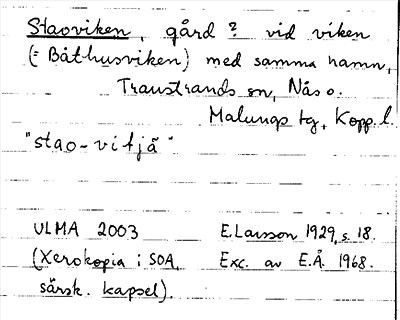 Staoviken, gård? vid viken
(= Båthusviken) med samma namn,
Transtrands sn, Nås o.
Malungs tg, Kopp.l.
"stao-vitjä"
ULMA 2003 E.Larsson 1929, s. 18.
(Xerokopia i SOA, Exc. av E.Å. 1968.
särsk. kapsel).